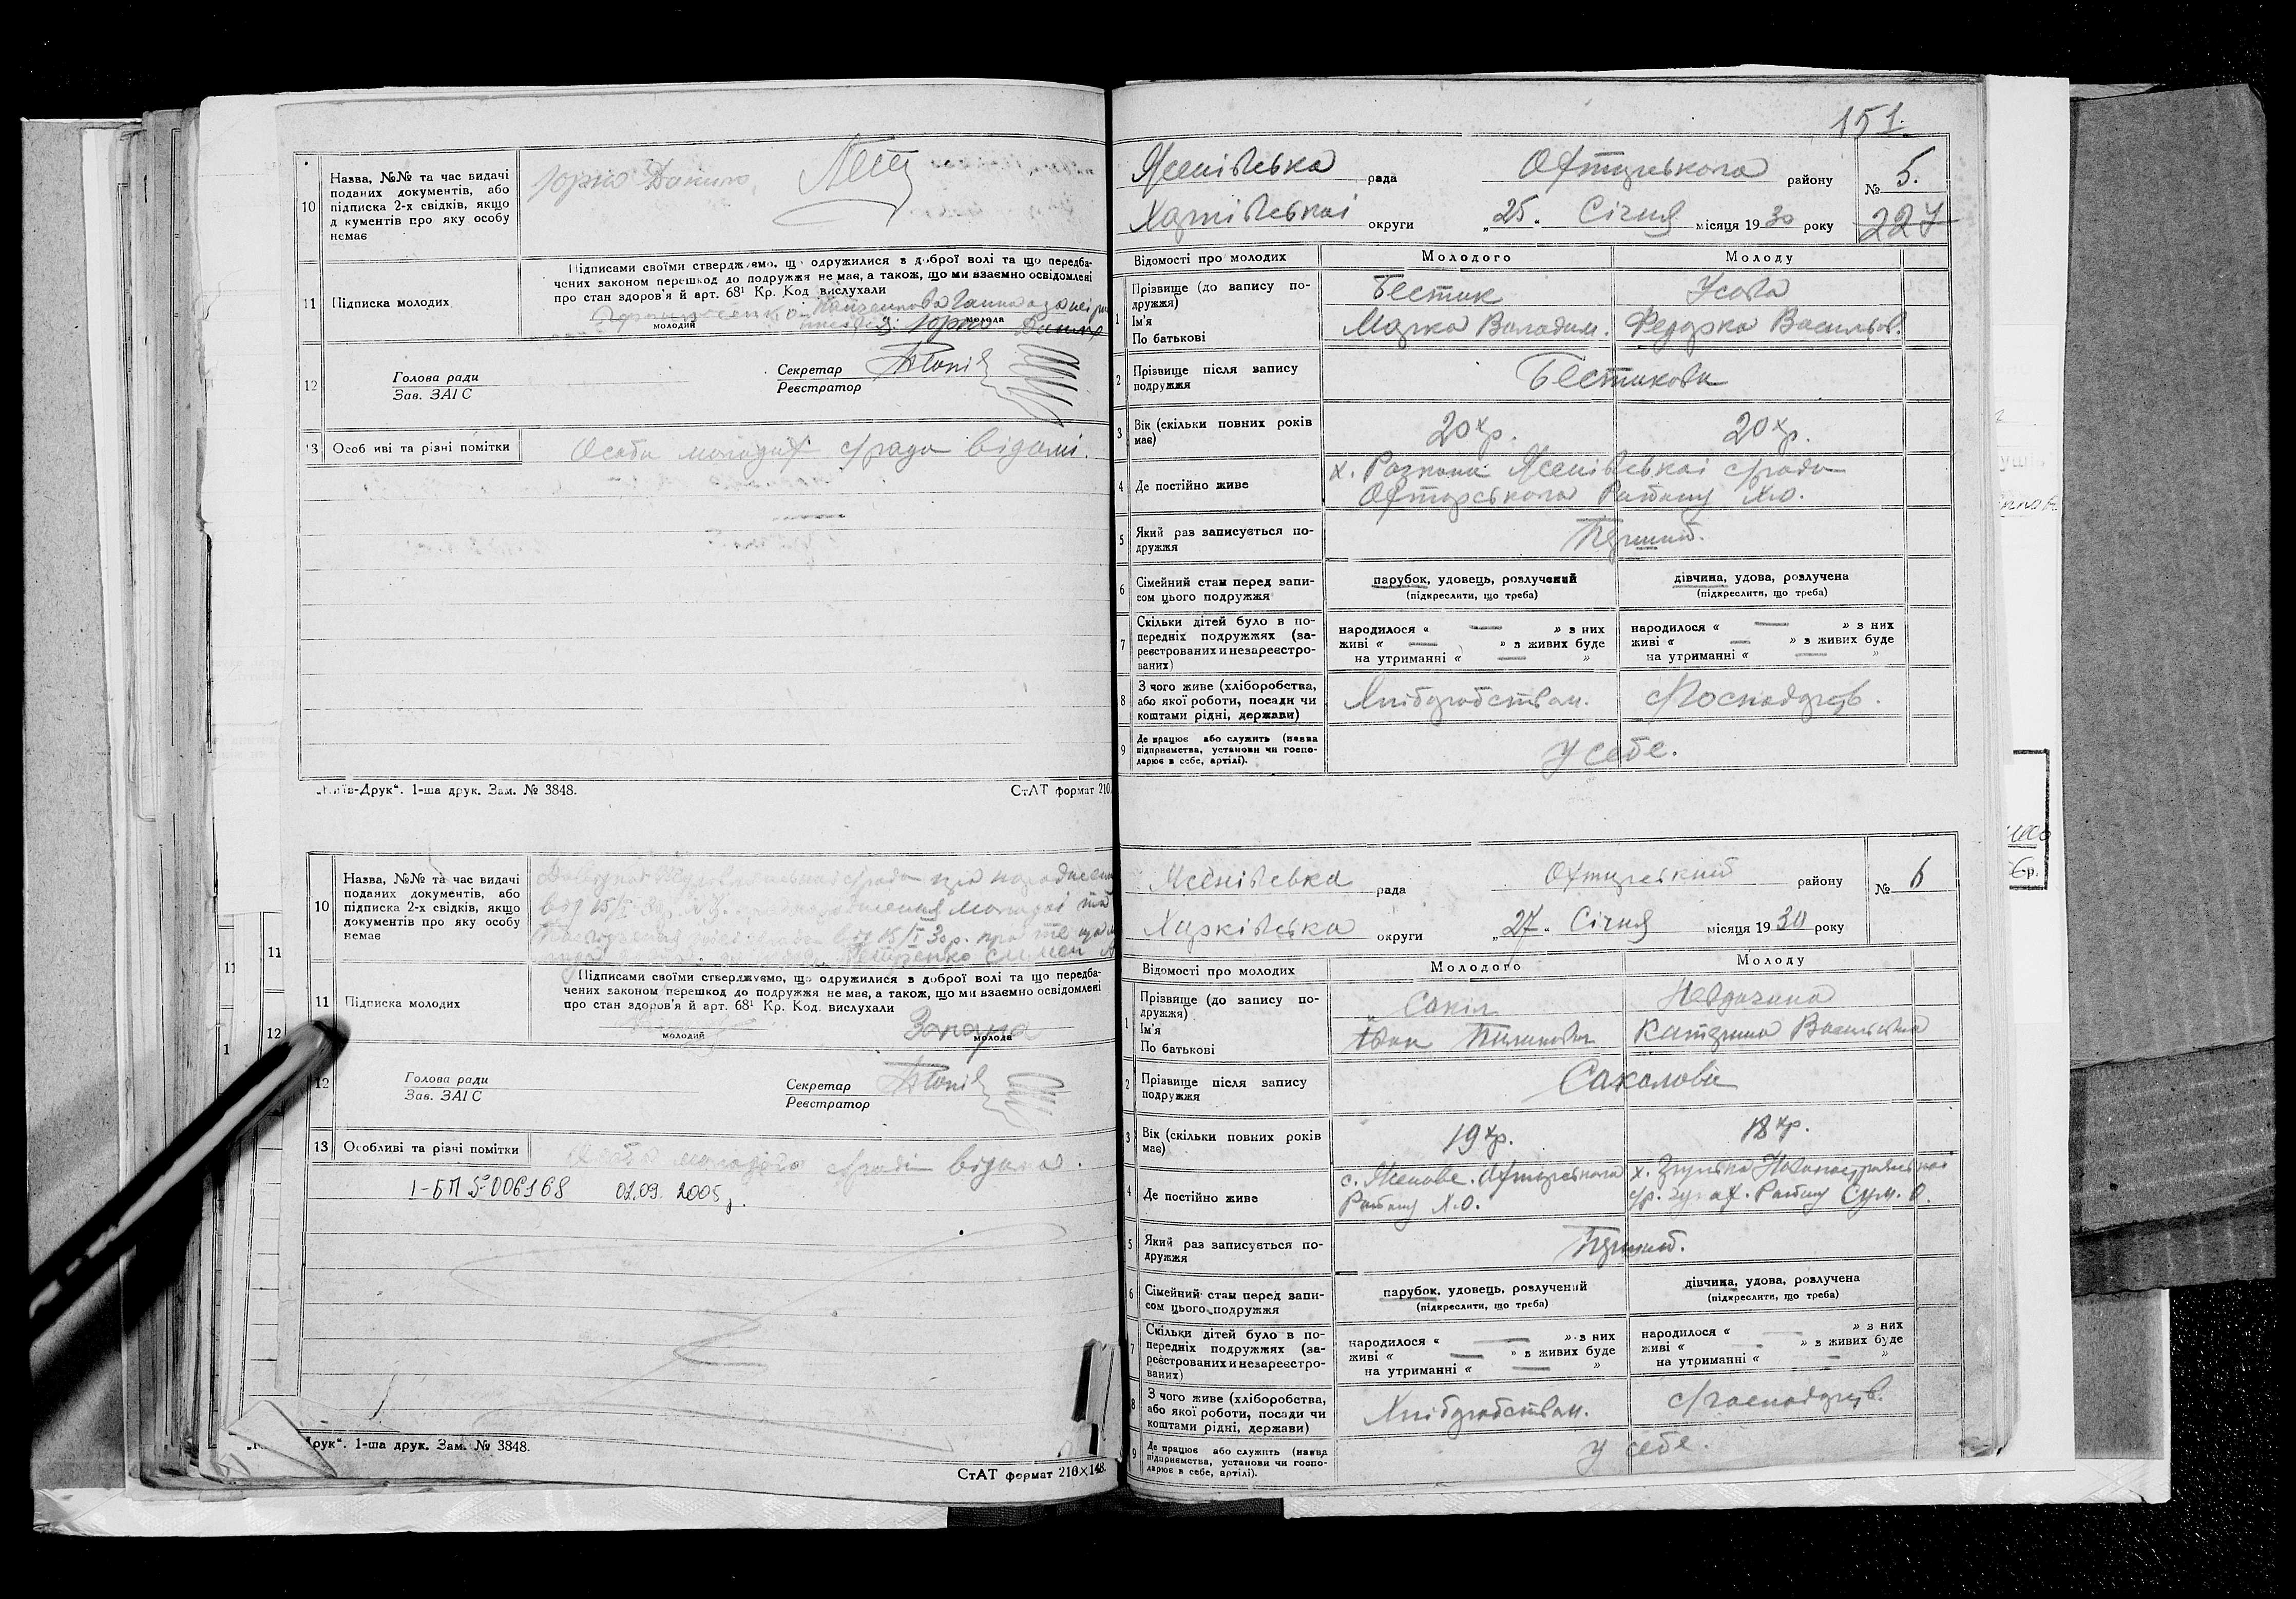 10 Назва, №№ та час видачі
поданих документів, або
підписка 2-х свідків, якщо
д кументів про яку особу
немає
Юрко Данило
Підписами своїми стверджуємо, що одружилися з доброї волі та що передба-
чених законом перешкод до подружжя не має, а також, що ми взаємно освідомлені
про стан здоров'я й арт. 68¹ Кр. Код вислухали
11 Підписка молодих
молодий молода
Юрко
12 Голова ради
Зав. ЗАГС
Секретар
Реєстратор
13 Особ иві та різні помітки
Особи молодих с/раді відомі.
„Київ-Друк“. 1-ша друк. Зам. № 3848.
СтАТ формат 210
10 Назва, №№ та час видачі
поданих документів, або
підписка 2-х свідків, якщо
документів про яку особу
немає
Підписами своїми стверджуємо, що одружилися з доброї волі та що передба-
чених законом перешкод до подружжя не має, а також, що ми взаємно освідомлені
про стан здоров'я й арт. 68¹ Кр. Код. вислухали
11 Підписка молодих
молодий молода
12 Голова ради
Зав. ЗАГС
Секретар
Реєстратор
13 Особливі та різні помітки
молодого с/раді відома.
І-БП № 006168 02.09. 2005р.
Друк“. 1-ша друк. Зам. № 3848.
СтАТ формат 210×148.
151.
Ясенівська рада Охтирського району № 5.
Харківської округи „25“ Січня місяця 1930 року 227
Відомості про молодих Молодого Молоду
1 Прізвище (до запису по-
дружжя)
Бестик Усова
Ім'я
По батькові
Марко Володим. Федорка Васильов.
2 Прізвище після запису
подружжя
Бестикови
3 Вік (скільки повних років
має)
20 р. 20 р.
4 Де постійно живе
х. Ясенівської с/ради
Охтирського Району Х.О.
5 Який раз записується по-
дружжя
Перший.
6 Сімейний стан перед запи-
сом цього подружжя
парубок, удовець, розлучений
(підкреслити, що треба)
дівчина, удова, розлучена
(підкреслити, що треба)
7 Скільки дітей було в по-
передніх подружжях (за-
реєстрованих и незареєстро-
ваних)
народилося « — » з них
живі « — » з живих буде
на утриманні « — »
народилося « — » з них
живі « — » з живих буде
на утриманні « — »
8 З чого живе (хліборобства,
або якої роботи, посади чи
коштами рідні, держави)
Хліборобством. с/господарств.
9 Де працює або служить (назва
підприємства, установи чи госпо-
дарює в себе, артілі).
У себе.
Ясенівська рада Охтирський району № 6
Харківська округи „27“ Січня місяця 1930 року
Відомості про молодих Молодого Молоду
1 Прізвище (до запису по-
дружжя)
Сокіл
Ім'я
По батькові
Іван Катерина Васильовна
2 Прізвище після запису
подружжя
Соколови
3 Вік (скільки повних років
має)
19 р. 18 р.
4 Де постійно живе
с. Ясенове. Охтирського
Району Х.О.
5 Який раз записується по-
дружжя
Перший.
6 Сімейний стан перед запи-
сом цього подружжя
парубок, удовець, розлучений
(підкреслити, що треба)
дівчина, удова, розлучена
(підкреслити, що треба)
7 Скільки дітей було в по-
передніх подружжях (за-
реєстрованих и незареєстро-
ваних)
народилося « — » з них
живі « — » з живих буде
на утриманні « — »
народилося « — » з них
живі « — » з живих буде
на утриманні « — »
8 З чого живе (хліборобства,
або якої роботи, посади чи
коштами рідні, держави)
Хліборобством. с/господарств.
9 Де працює або служить (назва
підприємства, установи чи госпо-
дарює в себе, артілі).
У себе.